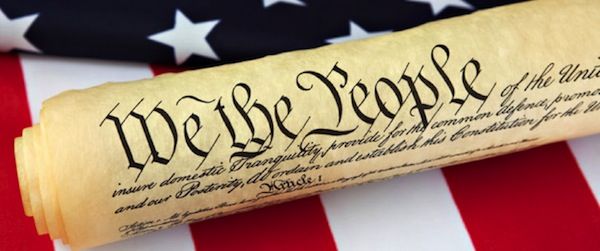 We the People of the Unit
insure domestic Tranquility, provide for the common defence, promo
and our Posterity, do ordain and establish this Constitution for the U
Article I